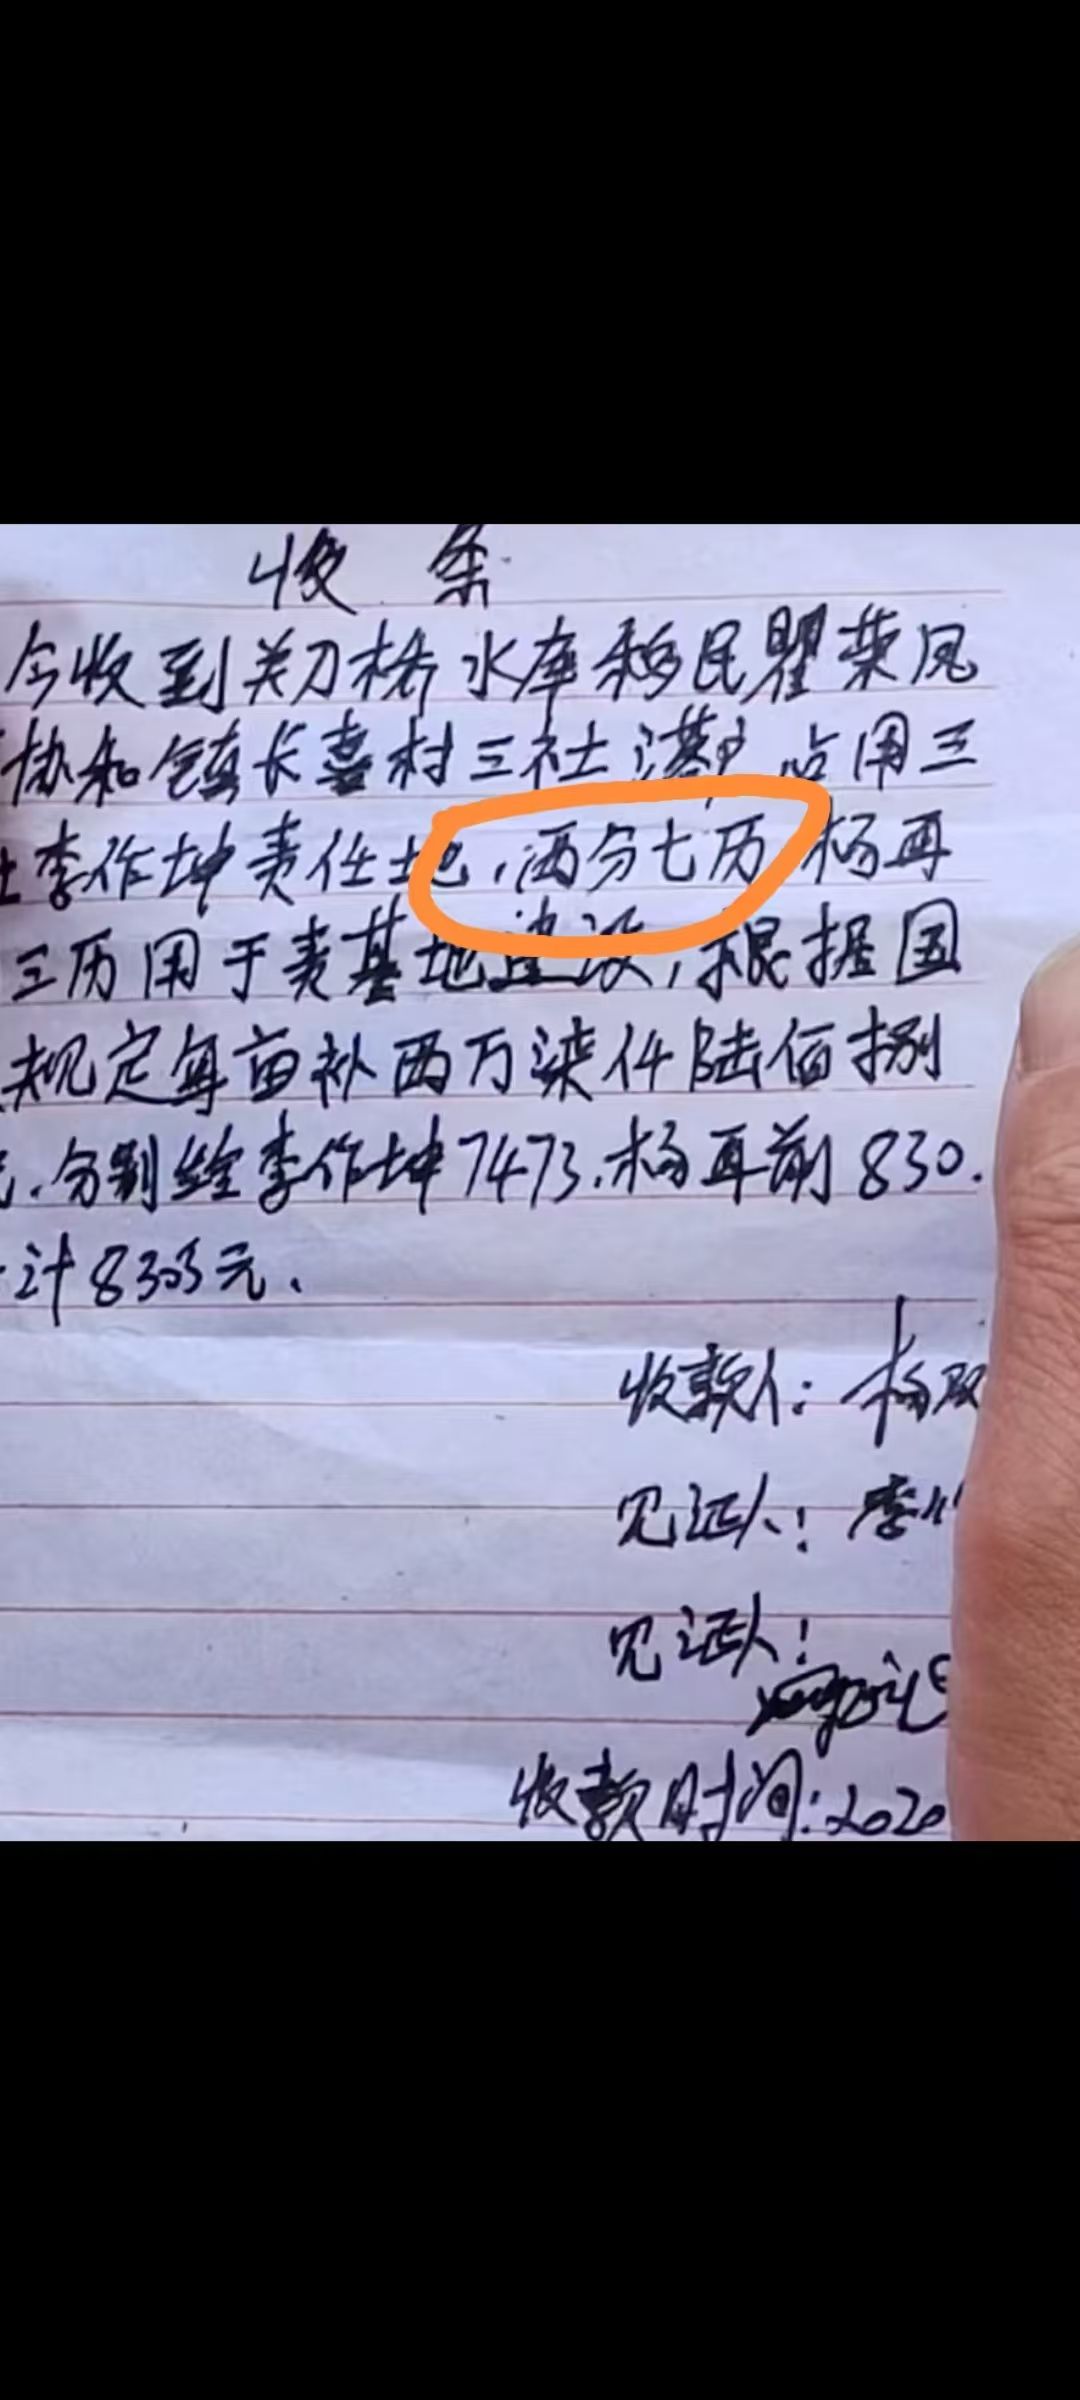 收条
今收到关刀桥水库移民瞿荣凤
协和镇长喜村三社 占用三
社李作坤责任地,两分七历 杨再
三历用于责基地建设,根据国
规定每亩补两万柒仟陆佰捌
元.分别给李作坤7473.杨再前830.
计8303元.
收款人:杨双
见证人:李
见证人:
收款时间:2020